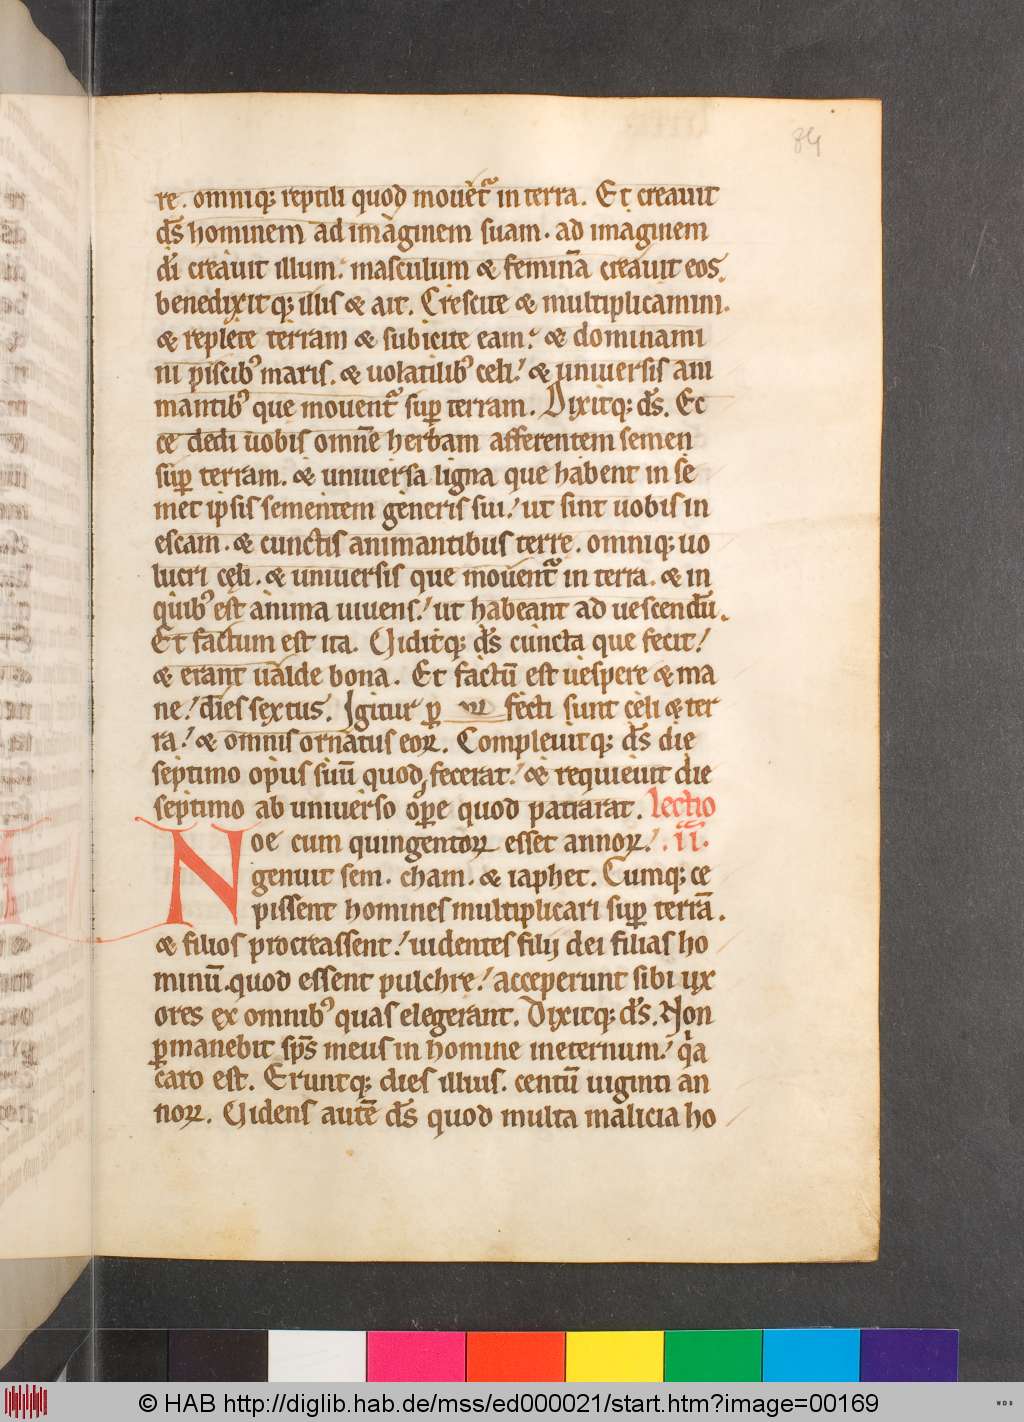 84
re. omniq; reptili quod mouet᷑ in terra. Et creauit
ds̄ hominem ad imaginem suam. ad imaginem
di̅ creauit illum. masculum & femina̅ creauit eos.
benedixitq; illis & ait. Crescite & multiplicamini.
& replete terram & subicite eam. & dominami
ni piscib᷒ maris. & uolatilib᷒ celi. & uniuersis ani
mantib᷒ que mouent᷑ suꝑ terram. Dixitq; ds̄. Ec
ce dedi uobis omne̅ herbam afferentem semen
suꝑ terram. & uniuersa ligna que habent in se
met ipsis sementem generis sui. ut sint uobis in
escam. & cunctis animantibus terre. omniq; uo
lucri cęli. & uniuersis que mouent᷑ in terra. & in
quib᷒ est anima uiuens. ut habeant ad uescendu̅.
Et factum est ita. Uiditq; ds̄ cuncta que fecit.
& erant ualde bona. Et factu̅ est uespere & ma
ne. dies sextus. Igitur ꝑ fecti sunt celi & ter
ra. & omnis ornatus eoꝝ. Compleuitq; ds̄ die
septimo opus suu̅ quod fecerat. & requieuit die
septimo ab uniuerso oꝑe quod patrarat. Lectio
Noe cum quingentoꝝ esset annoꝝ. .ii.
genuit sem. cham. & iaphet. Cumq; ce
pissent homines multiplicari suꝑ terra̅.
& filios procreassent. uidentes filij dei filias ho
minu̅. quod essent pulchre. acceperunt sibi ux
ores ex omnib᷒ quas elegerant. Dixitq; ds̄. Non
ꝑmanebit sps̄ meus in homine ineternum. qͥa
caro est. Eruntq; dies illius. centu̅ uiginti an
noꝝ. Uidens aute̅ ds̄ quod multa malicia ho
© HAB http://diglib.hab.de/mss/ed000021/start.htm?image=00169